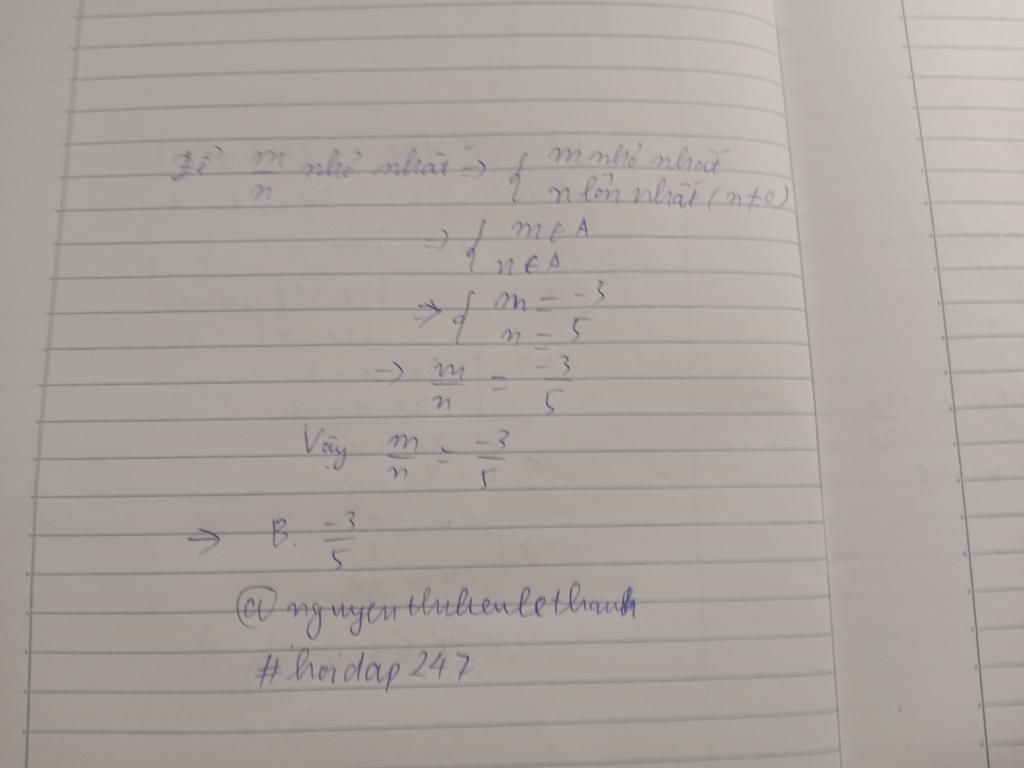 Để m/n nhỏ nhất => { m nhỏ nhất
n lớn nhất (n≠0)
=> { m ∈ A
n ∈ A
=> { m = -3
n = 5
-> m/n = -3/5
Vậy m/n = -3/5
=> B. -3/5
@nguyenthihienlethanh
#hoidap247